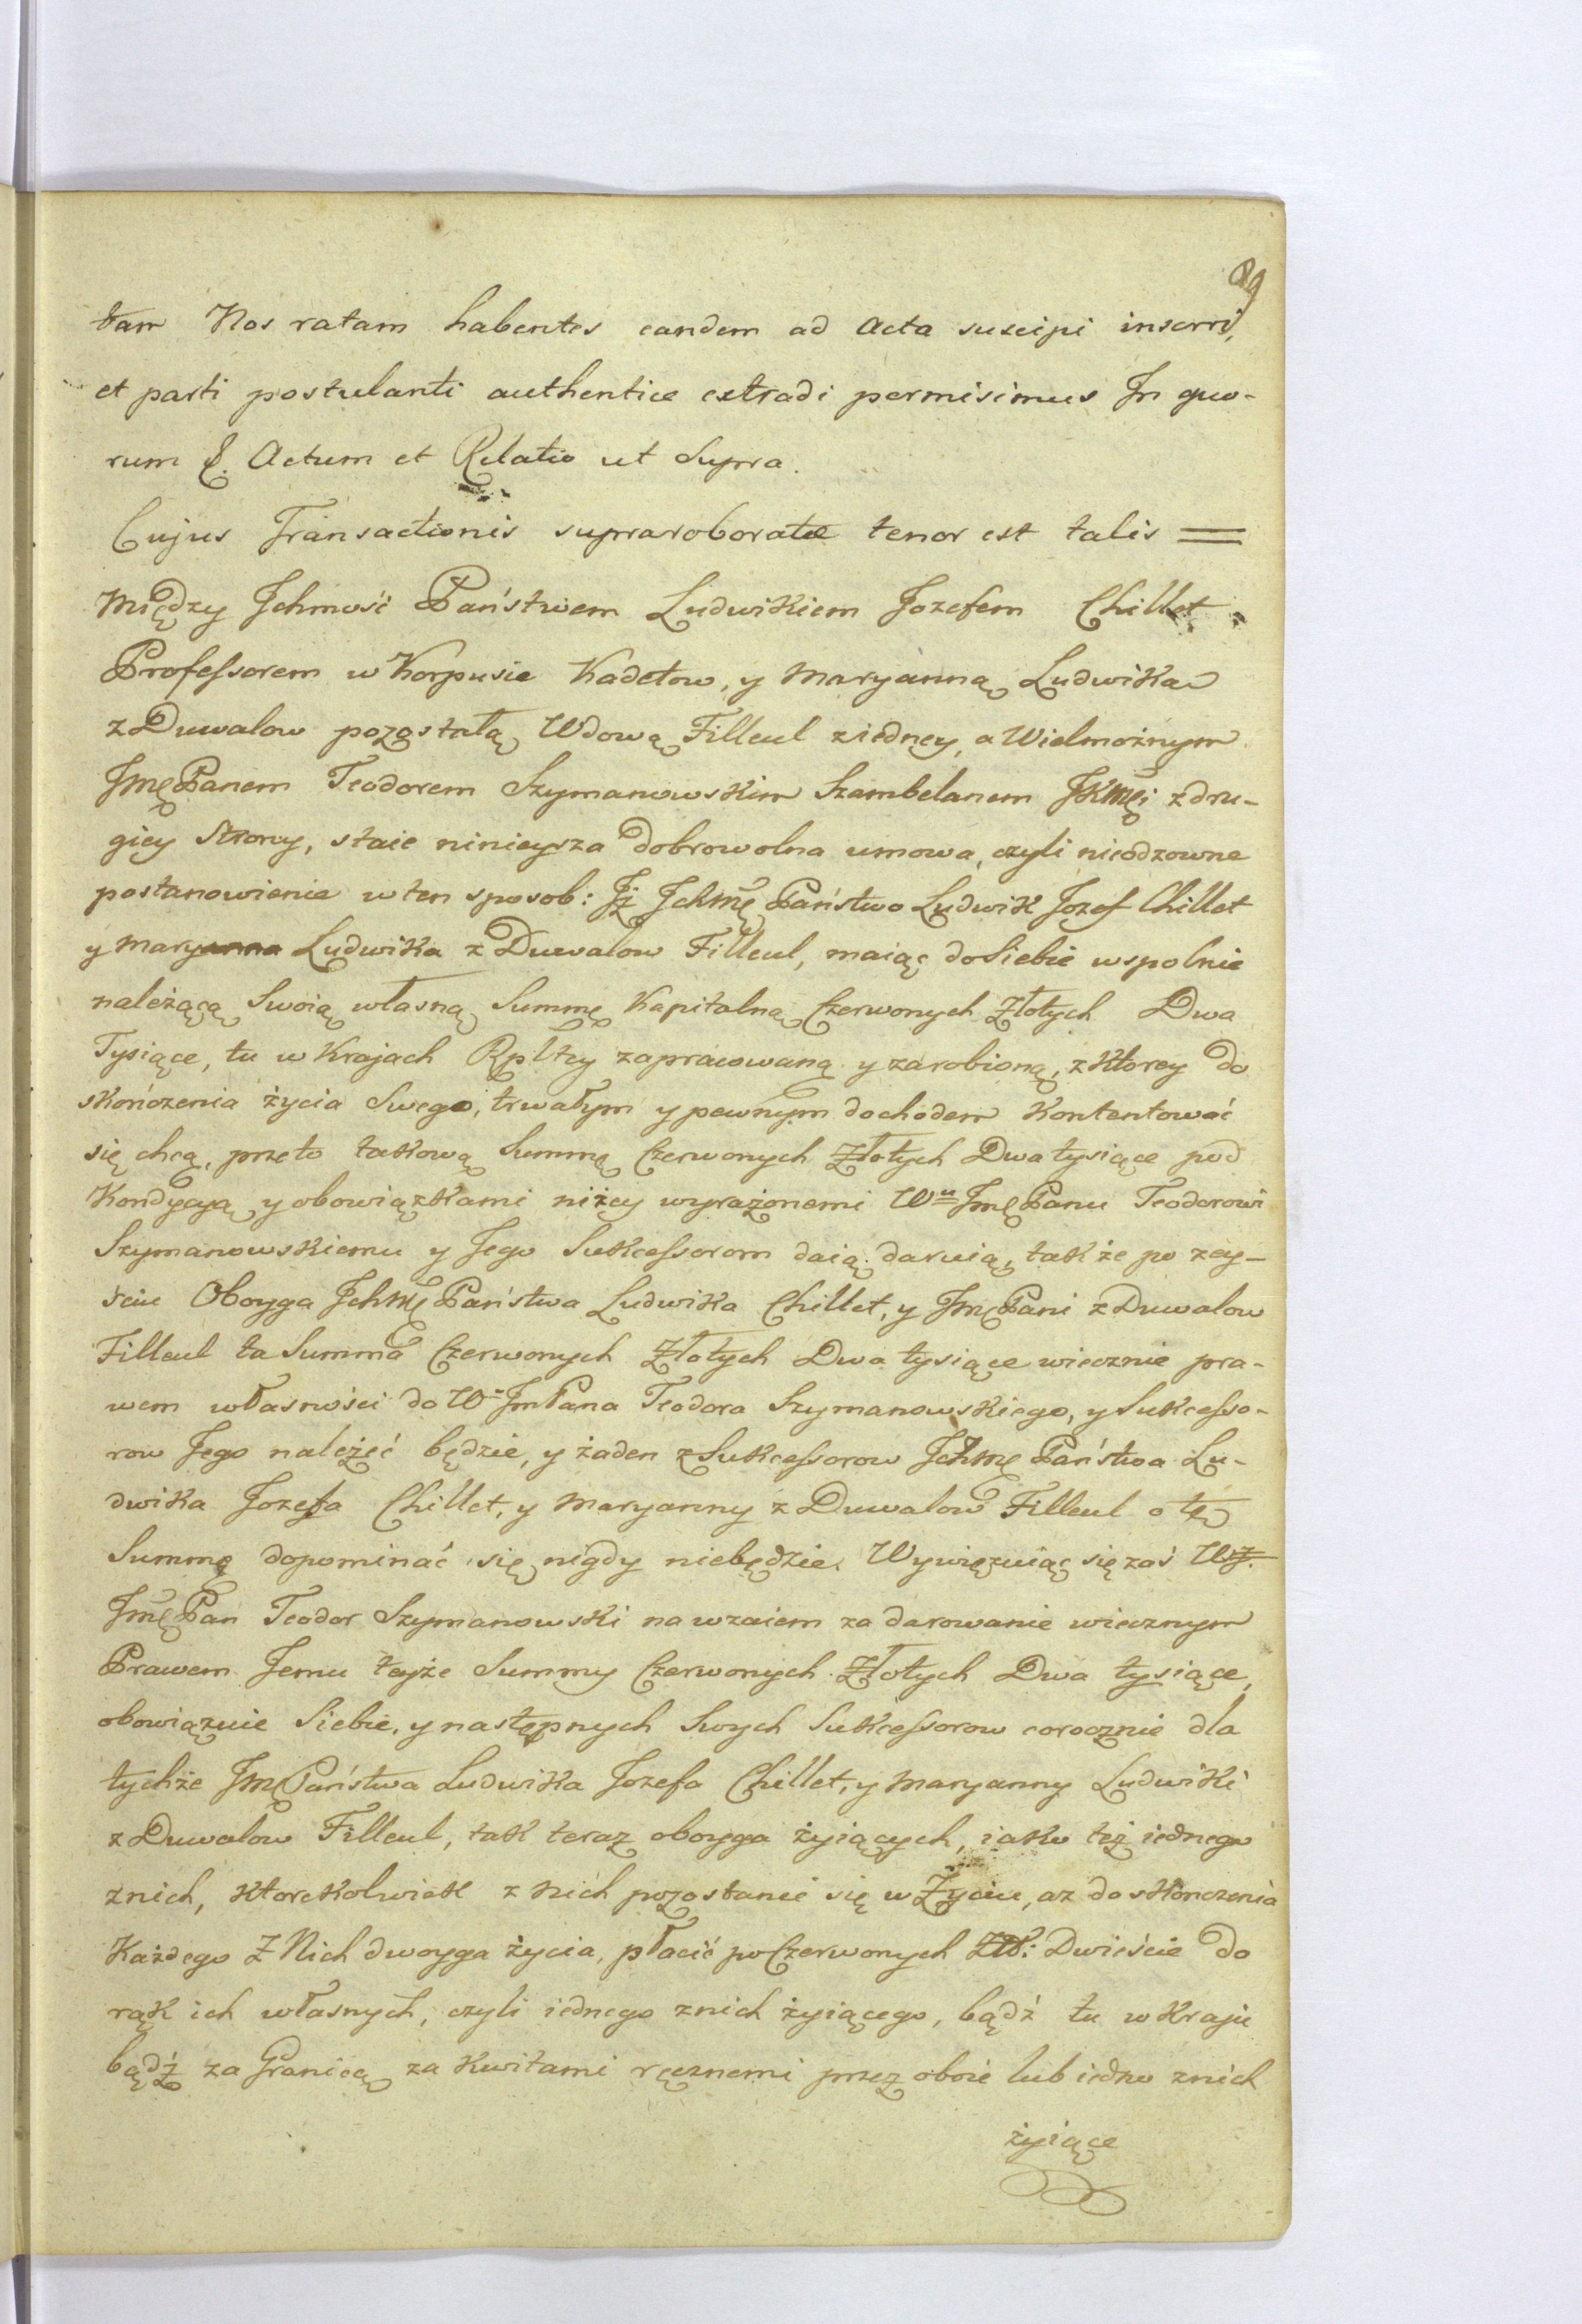 89
tam Nos ratam habentes eandem ad Acta suscipi inserri,
et parti postulanti authentice extradi permisimus In quo-
rum &. Actum et Relatio ut Supra.
Cujus Transactionis supraroboratæ tenor est talis =
Między Jchmość Państwem Ludwikiem Jozefem Chillet
Professorem w Korpusie Kadetow, y Maryanną Ludwiką
z Duwalow pozostałą Wdową Filleul ziedney, a Wielmożnym
JmęPanem Teodorem Szymanowskim Szambelanem JKmęi zdru-
giey Strony, staie ninieysza dobrowolna umowa, czyli nieodzowne
postanowienie w ten sposob: Jż Jchmę Państwo Ludwik Jozef Chillet
y Maryanna Ludwika z Duwalow Filleul, maiąc do Siebie wspolnie
należącą Swoią własną Summę Kapitalną Czerwonych Złotych Dwa
Tysiące, tu w Krajach Rpltey zapracowaną y zarobioną, z Ktorey do
skończenia życia Swego, trwałym y pewnym dochodem Kontentować
się chcą, przeto takową Summę Czerwonych Złotych Dwa tysiące pod
Kondycyą y obowiązkami niżey wyrażonemi Wu JmęPanu Teodorowi
Szymanowskiemu y Jego Sukcessorom daią, daruią, tak że po zey-
ściu Oboyga Jchmę Państwa Ludwika Chillet, y JmęPani z Duwalow
Filleul ta Summa Czerwonych Złotych Dwa tysiące wiecznie pra-
wem własności do W JmPana Teodora Szymanowskiego, y Sukcesso-
row Jego należeć będzie, y żaden z Sukcessorow Jchmę Państwa Lu-
dwika Jozefa Chillet, y Maryanny z Duwalow Filleul o tę
Summę dopominać się nigdy niebędzie. Wywięzuiąc się zaś WJ.
JmęPan Teodor Szymanowski na wzaiem za darowanie wiecznym
Prawem Jemu teyże Summy Czerwonych Złotych Dwa tysiące,
obowiązuie Siebie, y następnych Swych Sukcessorow corocznie dla
tychże JmęPaństwa Ludwika Jozefa Chillet, y Maryanny Ludwiki
z Duwalow Filleul, tak teraz oboyga żyiących, iako też iednego
znich, Ktorekolwiek z nich pozostanie się w Życiu, aż do skończenia
Każdego Z Nich dwoyga życia, płacić po Czerwonych Złł: Dwieście do
rąk ich własnych, czyli iednego znich żyiącego, bądź tu w Kraju
bądź za Granicą za Kwitami ręcznemi przez oboie lub iedno znich
żyiące